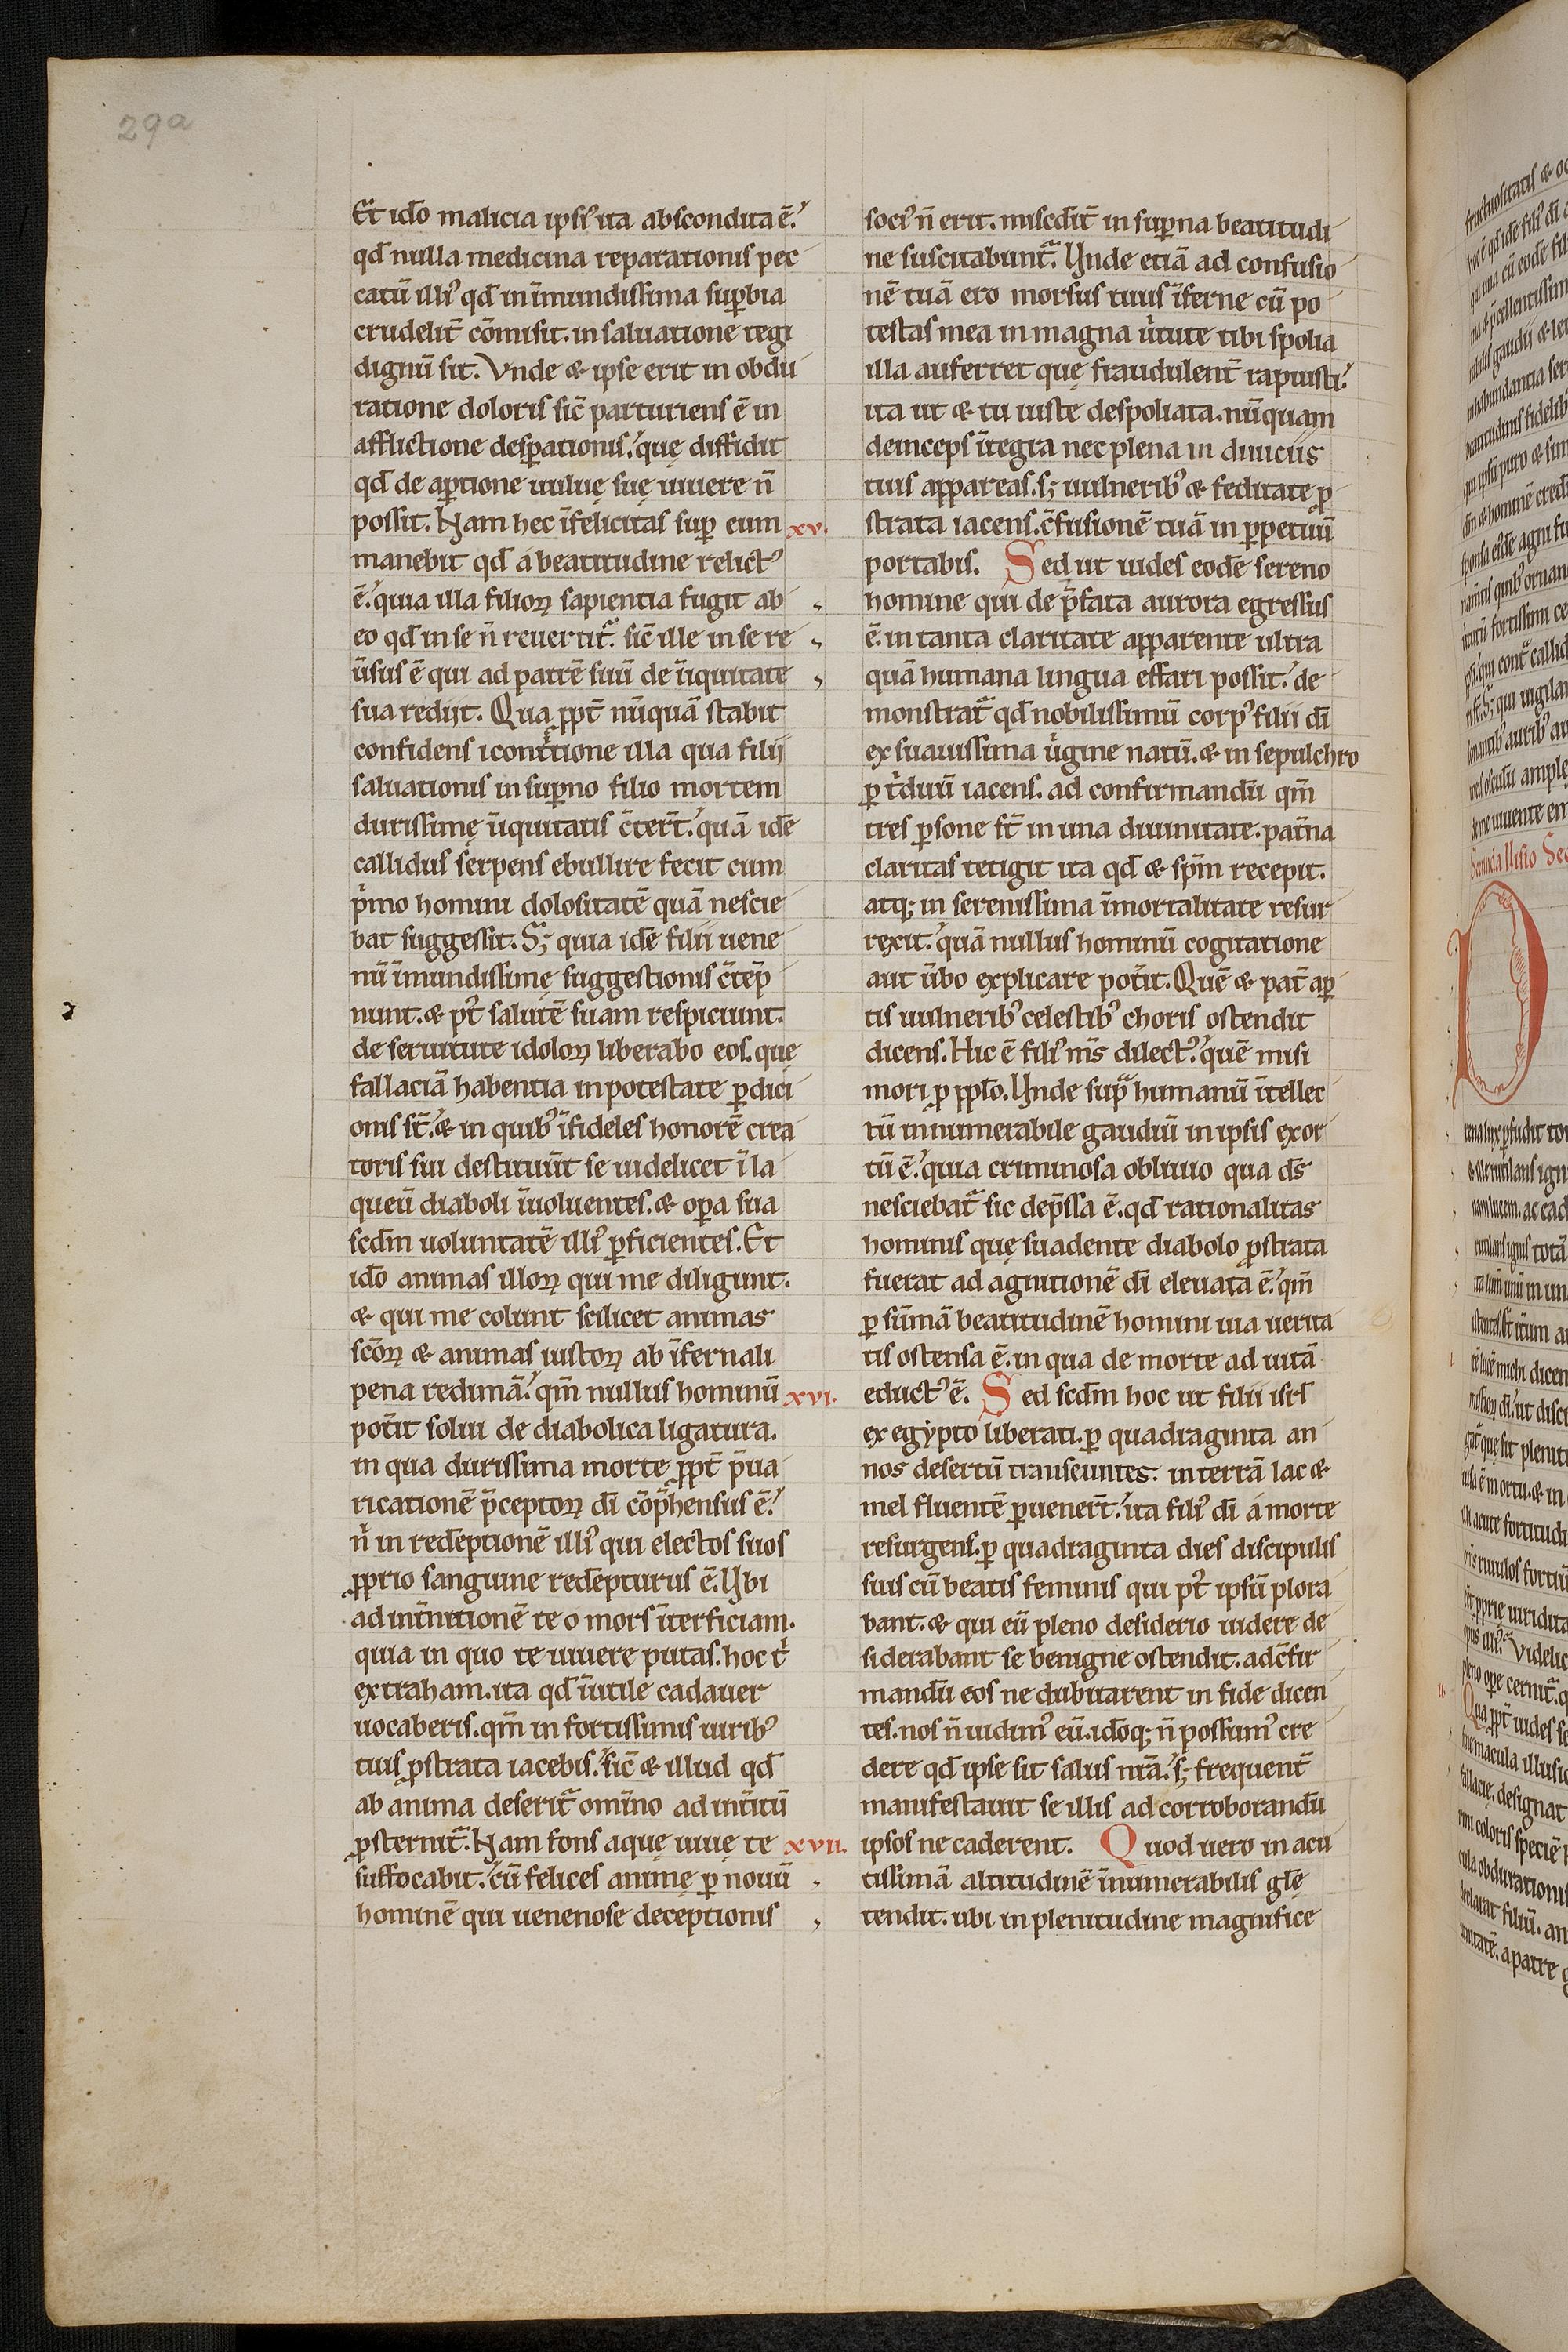 29a
Et idō malicia ipsiꝰ ita abscondita ē.
qđ nulla medicina reparationis pec
catū illiꝰ qđ in īmundissima suꝑbia
crudelit̄ cōmisit. in saluatione tegi
dignū sit. Vnde & ipse erit in obdu
ratione doloris sic̄ parturiens ē in
afflictione desꝑationis. quę diffidit
qđ de aꝑtione uuluę suę uiuere n̄
possit. Nam hec īfelicitas suꝑ eum
manebit qđ á beatitudine relictꝰ
ē. quia illa filioꝝ sapientia fugit ab
eo qđ in se n̄ reuertit᷑. sic̄ ille in se re
ūsus ē qui ad patrē suū de īiquitate
sua redijt. Qua ꝓpt̄ nūquā stabit
confidens i contͥtione illa qua filij
saluationis in suꝑno filio mortem
durissimę īiquitatis c̄trert̄. quā idē
callidus serpens ebullire fecit cum
pͥmo homini dolositatē quā nescie
bat suggessit. Sꝫ quia idē filii uene
nū īmundissimę suggestionis c̄tēp
nunt. & pꝰt salutē suam respiciunt.
de seruitute idoloꝝ liberabo eos. quę
fallaciā habentia in potestate ꝑdici
onis st̄. & in quibꝰ īfideles honorē crea
toris sui destituūt se uidelicet ī la
queū diaboli īuoluentes. & oꝑa sua
scdm̄ uoluntatē illiꝰ ꝑficientes. Et
idō animas illoꝝ qui me diligunt.
& qui me colunt scilicet animas
sc̄oꝝ & animas iustoꝝ ab īfernali
pena redimā. qm̄ nullus hominū
pot̄it solui de diabolica ligatura.
in qua durissima morte ꝓpt̄ p̄ua
ricationē p̄ceptoꝝ dī cōp̄hensus ē.
nͥ in redēptionē illiꝰ qui electos suos
ꝓprio sanguine redēpturus ē. Ubi
ad int̄nitionē te o mors īterficiam.
quia in quo te uiuere putas. hoc tͥ
extraham. ita qđ īutile cadauer
uocaberis. qm̄ in fortissimis uiribꝰ
tuis ꝓstrata iacebis. sic̄ & illud qđ
ab anima deserit᷑ omīno ad int̄itū
ꝓsternit᷑. Nam fons aquę uiuę te
suffocabit. cū felices animę ꝑ nouū
hominē qui uenenose deceptionis
sociꝰ n̄ erit. misc̄dit̄ in suꝑna beatitudi
ne suscitabunt᷑. Unde etiā ad confusio
nē tuā ero morsus tuus īferne cū po
testas mea in magna uͥtute tibi spolia
illa auferret quę fraudulent̄ rapuisti.
ita ut & tu iuste despoliata. nūquam
deinceps ītegra nec plena in diuiciis
tuis appareas. sꝫ uulneribꝰ & feditate ꝓ
strata iacens. c̄fusionē tuā in ꝑpetuū
portabis.
xv.
Sed ut uides eodē sereno
homine qui de p̄fata aurora egressus
ē. in tanta claritate apparente ultra
quā humana lingua effari possit. de
monstrat᷑ qđ nobilissimū corpꝰ filii dī
ex suauissima uͥgine natū. & in sepulchro
ꝑ tͥduū iacens. ad confirmandū qm̄
tres ꝑsone st̄ in una diuinitate. pat̄na
claritas tetigit ita qđ & spm̄ recepit.
atqꝫ in serenissima īmortalitate resur
rexit. quā nullus hominū cogitatione
aut ūbo explicare pot̄it. Quē & pat̄ aꝑ
tis uulneribꝰ celestibꝰ choris ostendit
dicens. Hic ē filiꝰ ms̄ dilectꝰ. quē misi
mori ꝓ pplō. Unde supᷓ humanū ītellec
tū innumerabile gaudiū in ipsis exor
tū ē. quia criminosa obliuio qua ds̄
nesciebat᷑ sic dep̄ssa ē. qđ rationalitas
hominis quę suadente diabolo ꝓstrata
fuerat ad agnitionē dī eleuata ē. qm̄
ꝑ sūmā beatitudinē homini uia uerita
tis ostensa ē. in qua de morte ad uitā
eductꝰ ē.
xvi.
Sed scdm̄ hoc ut filii isrl̄
ex egypto liberati. ꝑ quadraginta an
nos desertū transeuntes. in terrā lac &
mel fluentē ꝑuenert̄. ita filiꝰ dī á morte
resurgens. ꝑ quadraginta dies discipulis
suis cū beatis feminis qui pꝰt ipsū plora
bant. & qui eū pleno desiderio uidere de
siderabant se benigne ostendit. ad c̄fir
mandū eos ne dubitarent in fide dicen
tes. nos n̄ uidimꝰ eū. idōqꝫ n̄ possumꝰ cre
dere qđ ipse sit salus nr̄a. sꝫ frequent̄
manifestauit se illis ad corroborandū
ipsos ne caderent.
xvii.
Quod uero in acu
tissimā altitudinē īnumerabilis glę̄
tendit. ubi in plenitudine magnifice